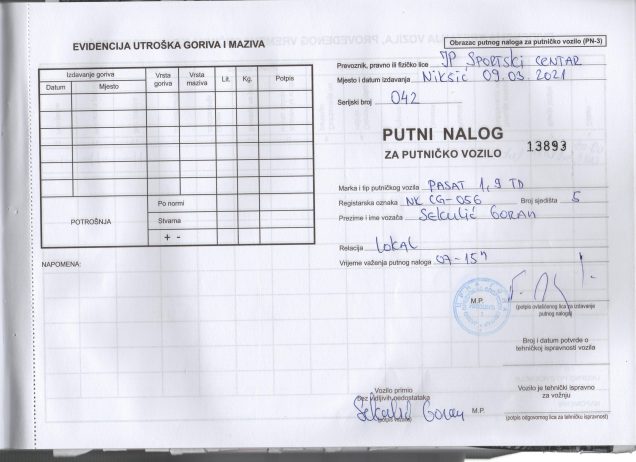 EVIDENCIJA UTROŠKA GORIVA I MAZIVA
Izdavanje goriva
Datum Mjesto
Vrsta goriva
Vrsta maziva
Lit.
Kg.
Potpis
POTROŠNJA
Po normi
Stvarna
+ -
NAPOMENA:
Vozilo primio
bez vidljivih nedostataka
Sekulić Goran
(potpis vozača)
Obrazac putnog naloga za putničko vozilo (PN-3)
Prevoznik, pravno ili fizičko lice JP SPORTSKI CENTAR
Mjesto i datum izdavanja Nikšić 09.03.2021
Serijski broj 042
PUTNI NALOG
ZA PUTNIČKO VOZILO 13893
Marka i tip putničkog vozila PASAT 1,9 TD
Registarska oznaka NK CG-056 Broj sjedišta 5
Prezime i ime vozača Sekulić Goran
Relacija Lokal
Vrijeme važenja putnog naloga 07-15h
M.P.
(potpis ovlašćenog lica za izdavanje
putnog naloga)
Broj i datum potvrde o
tehničkoj ispravnosti vozila
Vozilo je tehnički ispravno
za vožnju
M.P.
(potpis odgovornog lica za tehničku ispravnost)